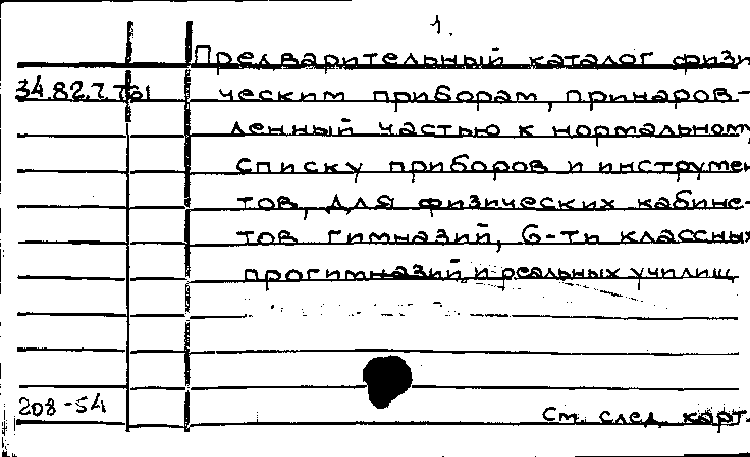 1.
Предварительный каталог физи
34.82.7.Т61 ческим приборам, принаров-
ленный частью к нормальному
списку приборов и инструмен
тов, для физических кабине-
тов гимназий, 6-ти классных
прогимназий и реальных училищ
208-54
См. след. карт.